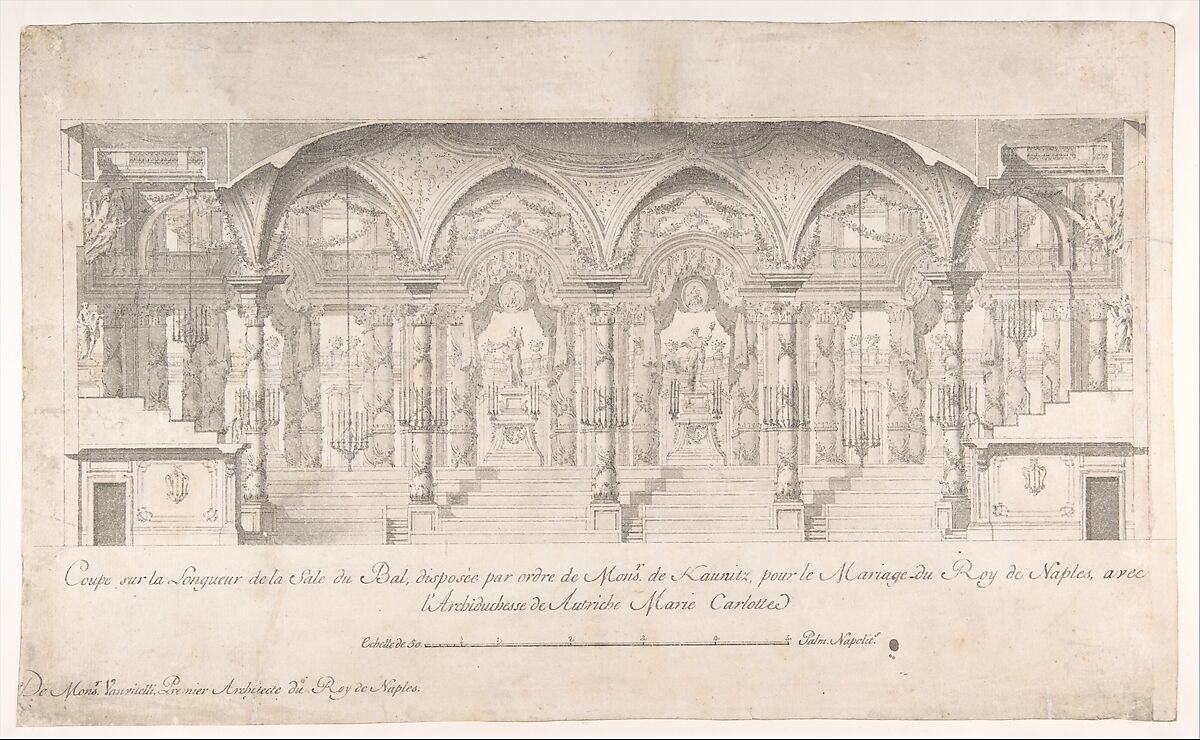 Coupe sur la Longueur de la Sale du Bal, disposée par ordre de Monsr. de Kaunitz, pour le Mariage du Roy de Naples, avec
l'Archiduchesse de Autriche Marie Carlotte
Echelle de 50. 1 2 3 4 5 Palm. Napolit.s
De Monsr. Vanvitelli, Premier Architecte du Roy de Naples.